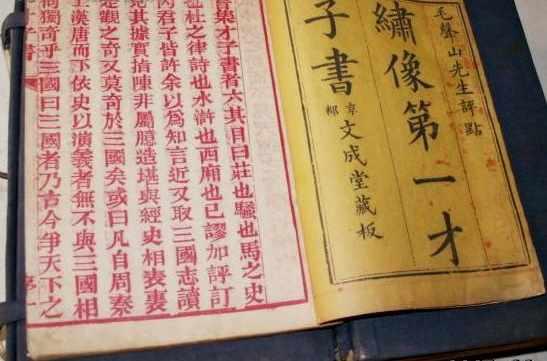 毛聲山先生評點
繡像第一才
子書
文成堂藏板
嘗集才子書者六其目曰莊也騷也馬之史
也杜之律詩也水滸也西廂也已謬加評訂
內君子皆許余以為知言近又取三國志讀
見其據實指陳非屬臆造堪與經史相表裏
是觀之奇又莫奇於三國矣或曰凡自周秦
上漢唐而下依史以演義者無不與三國相
何獨奇乎三國曰三國者乃古今爭天下之
子書
序